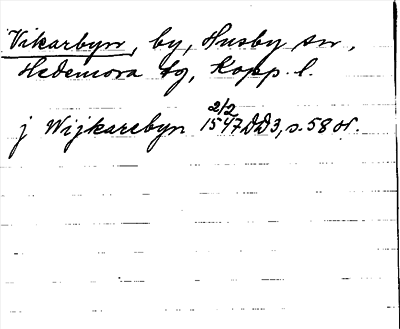 Vikarbyn, by, Husby sn,
Hedemora tg, Kopp. l.
j Wijkarebyn 2/2 1547 DD3, s. 58 or.